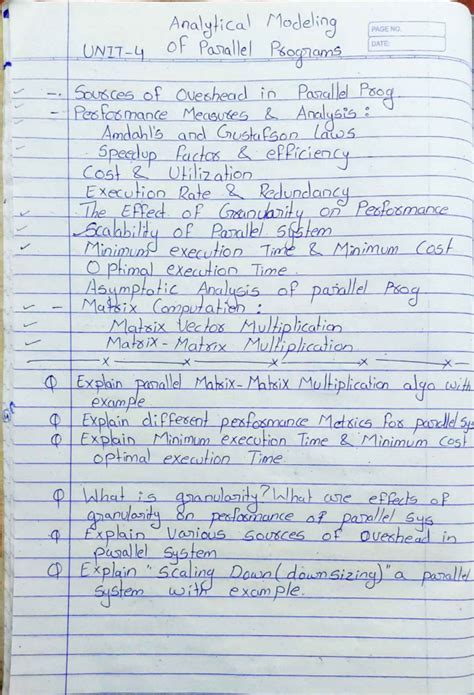 Analytical Modeling
PAGE NO.
DATE:
UNIT-4 of Parallel Programs
-. Sources of Overhead in Parallel Prog
- Performance Measures & Analysis :
Amdahl's and Gustafson Laws
Speedup factor & efficiency
Cost & Utilization
Execution Rate & Redundancy
The Effect of Granularity on Performance
Scalability of Parallel System
Minimum execution Time & Minimum Cost
Optimal execution Time.
Asymptotic Analysis of parallel Prog
- Matrix Computation :
Matrix Vector Multiplication
Matrix - Matrix Multiplication
x x x x x
Q Explain parallel Matrix-Matrix Multiplication algo with
example
Q Explain different performance Metrics for parallel sys
Q Explain Minimum execution Time & Minimum cost
optimal execution Time.
Q What is granularity? What are effects of
granularity on performance of parallel sys
Q Explain various sources of overhead in
parallel system
Q Explain "Scaling Down (downsizing)" a parallel
system with example.